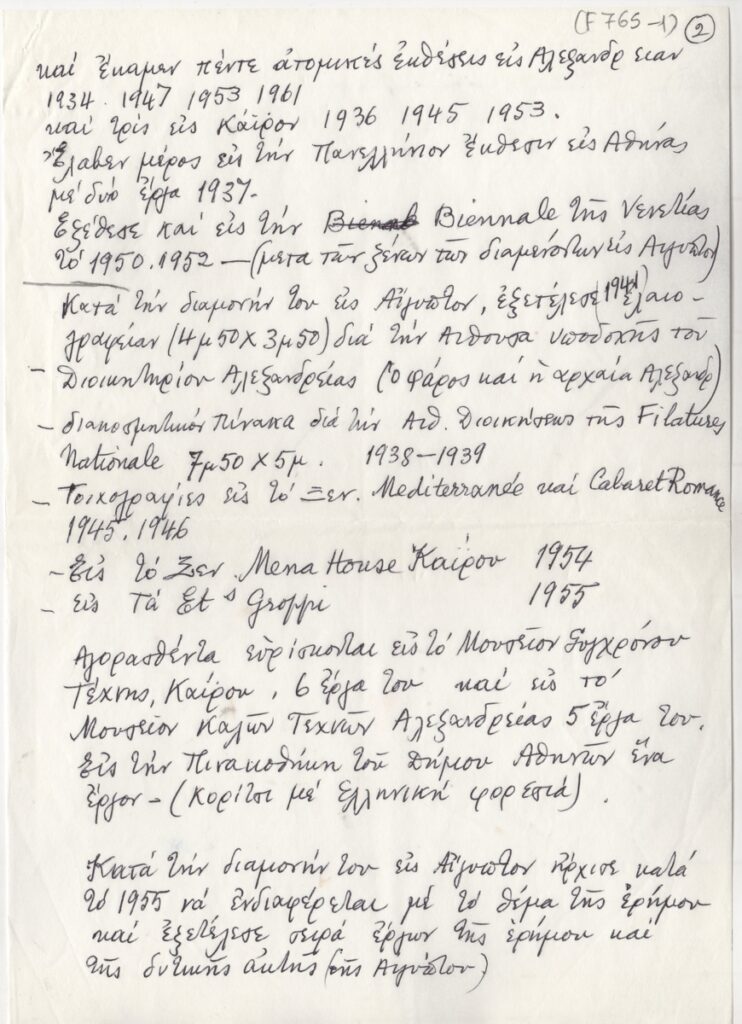 (F765-1) 2
καί ἔκαμεν πέντε ἀτομικές ἐκθέσεις εἰς Ἀλεξάνδρειαν
1934. 1947 1953 1961
καί τρίς εἰς Κάϊρον 1936 1945 1953.
Ἔλαβεν μέρος εἰς τήν Πανελλήνιον Ἔκθεσιν εἰς Ἀθήνας
μέ δυό ἔργα 1937-
Ἐξέθεσε καί εἰς τήν Biennale τῆς Νενετίας
τό 1950.1952 — (μετα τῶν ξένων τῶν διαμενόντων εἰς Αιγυπτον)
Κατά τήν διαμονήν του εἰς Αἴγυπτον, ἐξετέλεσε (1941) ἐλαιο-
γραφείαν (4μ50 Χ 3μ50) διά τήν Αιθουσα υποδοχῆς τοῦ
- Διοικητηρίου Αλεξανδρείας (ὁ φάρος καί ἡ αρχαία Αλεξανδρ)
- διακοσμητικόν πίνακα διά τήν Αιθ. Διοικήσεως τῆς Filatures
Nationale 7μ50 Χ 5μ. 1938-1939
- Τοιχογραφίες εἰς τό Ξεν. Mediterranée καί Cabaret Romance
1945. 1946
- Εἰς τό Ξεν. Mena House Καΐρου 1954
- εἰς τά Et s Groppi 1955
Αγορασθέντα εὑρίσκονται εἰς τό Μουσεῖον Συγχρόνου
Τέχνης, Καΐρου, 6 ἔργα του καί εἰς τό
Μουσεῖον Καλῶν Τεχνῶν Αλεξανδρείας 5 ἔργα του.
Εἰς τήν Πινακοθήκη τοῦ Δήμου Αθηνῶν ἕνα
ἔργον - (Κορίτσι μέ ἑλληνική φορεσιά).
Κατά τήν διαμονήν του εἰς Αἴγυπτον ἤρχισε κατά
τό 1955 νά ἐνδιαφέρεται μέ τό θέμα τῆς ἐρήμου
καί ἐξετέλεσε σειρά ἔργων τῆς ἐρήμου καί
τῆς δυτικῆς ἀκτῆς (τῆς Αιγύπτου)